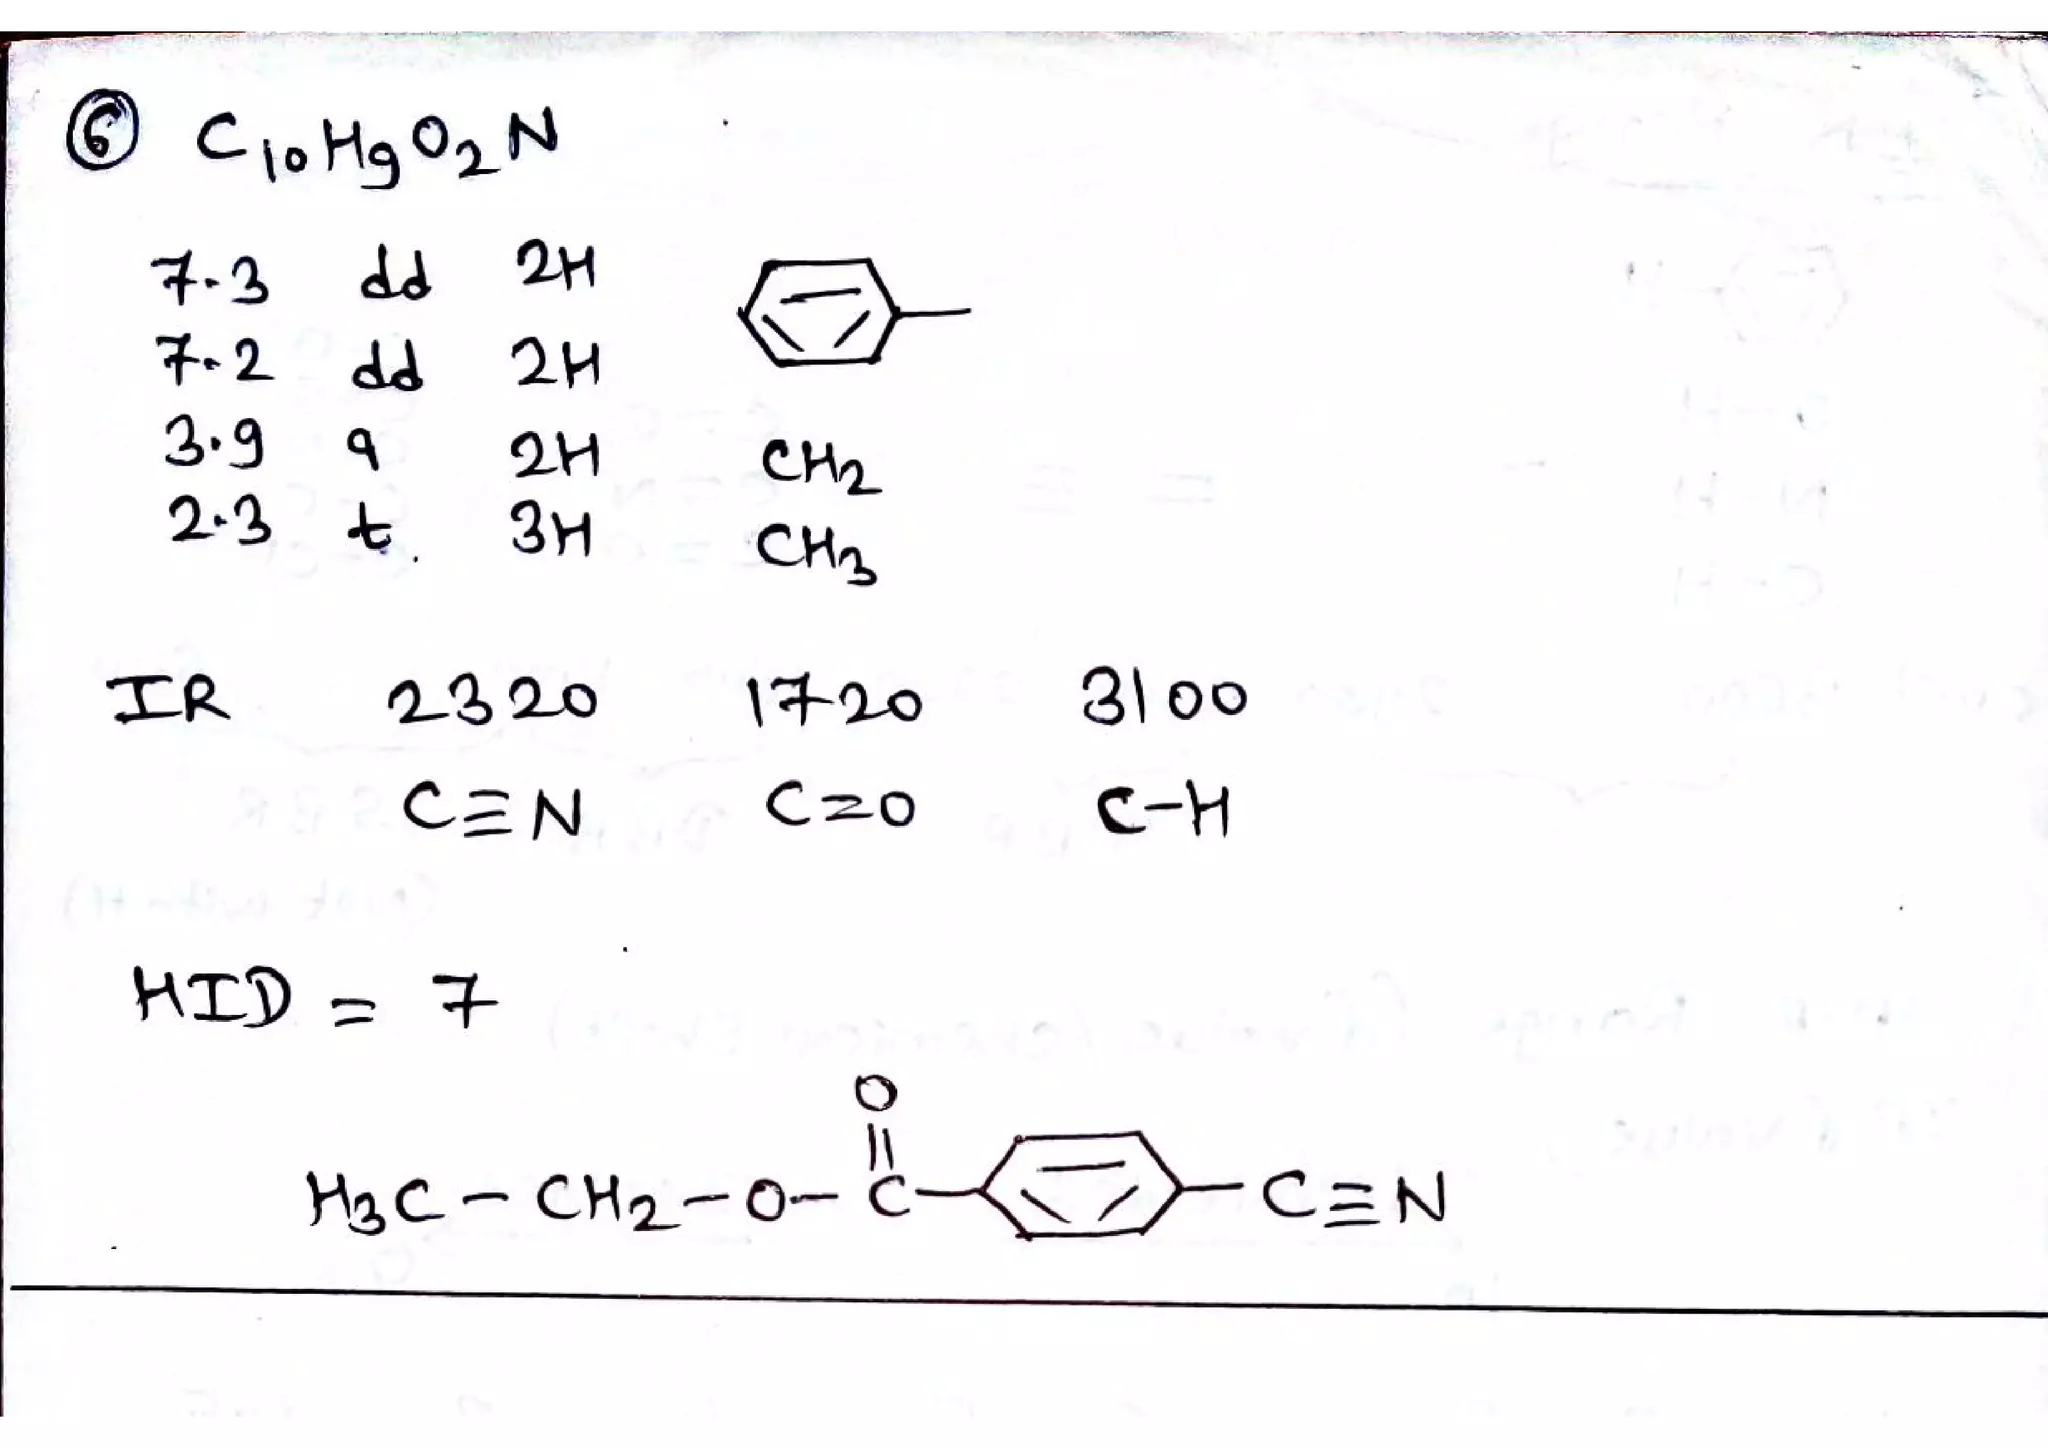 ⑥ C10H9O2N
7.3 dd 2H
7.2 dd 2H
3.9 q 2H CH2
2.3 t. 3H CH3
IR 2320 1720 3100
C≡N C=O C-H
HID = 7
O
||
H3C - CH2 - O - C - - C≡N